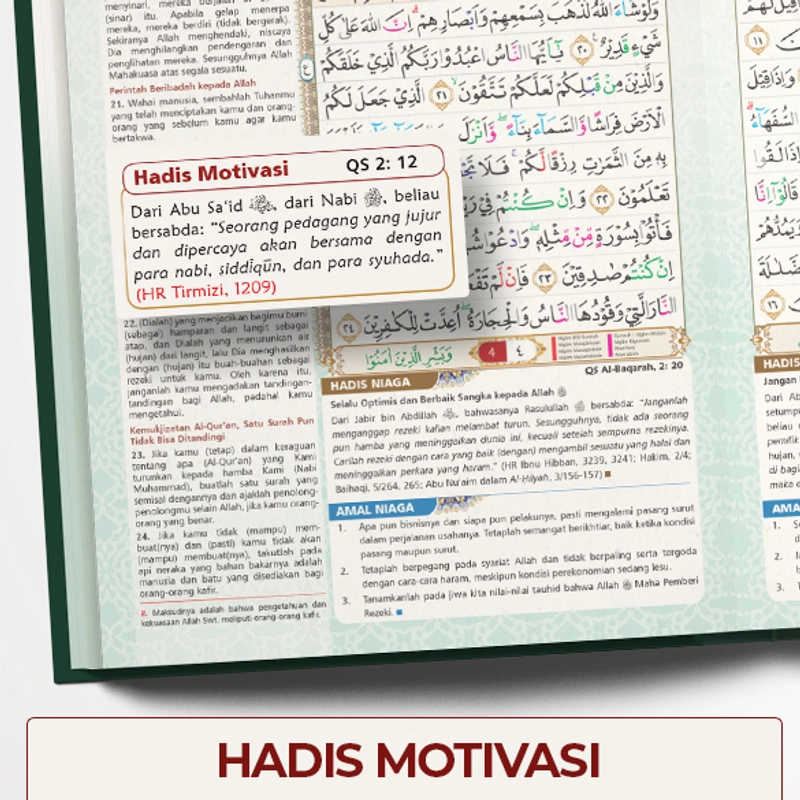 menyinari, mereka berjalan di bawah
(sinar) itu. Apabila gelap menerpa
mereka, mereka berdiri (tidak bergerak).
Sekiranya Allah menghendaki, niscaya
Dia menghilangkan pendengaran dan
penglihatan mereka. Sesungguhnya Allah
Mahakuasa atas segala sesuatu.
Perintah Beribadah kepada Allah
21. Wahai manusia, sembahlah Tuhanmu
yang telah menciptakan kamu dan orang-
orang yang sebelum kamu agar kamu
bertakwa.
Hadis Motivasi QS 2: 12
Dari Abu Sa'id ﷺ, dari Nabi ﷺ, beliau
bersabda: "Seorang pedagang yang jujur
dan dipercaya akan bersama dengan
para nabi, siddīqūn, dan para syuhada."
(HR Tirmizi, 1209)
22. (Dialah) yang menjadikan bagimu bumi
(sebagai) hamparan dan langit sebagai
atap, dan Dialah yang menurunkan air
(hujan) dari langit, lalu Dia menghasilkan
dengan (hujan) itu buah-buahan sebagai
rezeki untuk kamu. Oleh karena itu,
janganlah kamu mengadakan tandingan-
tandingan bagi Allah, padahal kamu
mengetahui.
Kemukjizatan Al-Qur'an, Satu Surah Pun
Tidak Bisa Ditandingi
23. Jika kamu (tetap) dalam keraguan
tentang apa (Al-Qur'an) yang Kami
turunkan kepada hamba Kami (Nabi
Muhammad), buatlah satu surah yang
semisal dengannya dan ajaklah penolong-
penolongmu selain Allah, jika kamu orang-
orang yang benar.
24. Jika kamu tidak (mampu) mem-
buat(nya) dan (pasti) kamu tidak akan
(mampu) membuat(nya), takutlah pada
api neraka yang bahan bakarnya adalah
manusia dan batu yang disediakan bagi
orang-orang kafir.
8. Maksudnya adalah bahwa pengetahuan dan
kekuasaan Allah Swt. meliputi orang-orang kafir.
وَلَوْ شَاۤءَ اللّٰهُ لَذَهَبَ بِسَمْعِهِمْ وَاَبْصَارِهِمْ ۗ اِنَّ اللّٰهَ عَلٰى كُلِّ
شَيْءٍ قَدِيْرٌ ࣖ ٢٠ يٰٓاَيُّهَا النَّاسُ اعْبُدُوْا رَبَّكُمُ الَّذِيْ خَلَقَكُمْ
وَالَّذِيْنَ مِنْ قَبْلِكُمْ لَعَلَّكُمْ تَتَّقُوْنَ ۙ ٢١ الَّذِيْ جَعَلَ لَكُمُ
الْاَرْضَ فِرَاشًا وَّالسَّمَاۤءَ بِنَاۤءً ۖ وَّاَنْزَلَ
بِهٖ مِنَ الثَّمَرٰتِ رِزْقًا لَّكُمْ ۚ فَلَا
تَعْلَمُوْنَ ٢٢ وَاِنْ كُنْتُمْ فِيْ
فَأْتُوْا بِسُوْرَةٍ مِّنْ مِّثْلِهٖ ۖ وَادْعُوْا
اِنْ كُنْتُمْ صٰدِقِيْنَ ٢٣ فَاِنْ لَّمْ
النَّارَ الَّتِيْ وَقُوْدُهَا النَّاسُ وَالْحِجَارَةُ ۖ اُعِدَّتْ لِلْكٰفِرِيْنَ ٢٤
وَبَشِّرِ الَّذِيْنَ اٰمَنُوْا 4 ٤
HADIS NIAGA QS Al-Baqarah, 2: 20
Selalu Optimis dan Berbaik Sangka kepada Allah
Dari Jabir bin Abdillah, bahwasanya Rasulullah ﷺ bersabda: "Janganlah
menganggap rezeki kalian melambat turun. Sesungguhnya, tidak ada seorang
pun hamba yang meninggalkan dunia ini, kecuali setelah sempurna rezekinya.
Carilah rezeki dengan cara yang baik (dengan) mengambil sesuatu yang halal dan
meninggalkan perkara yang haram." (HR Ibnu Hibban, 3239, 3241; Hakim, 2/4;
Baihaqi, 5/264, 265; Abu Nu'aim dalam Al-Hilyah, 3/156-157)
AMAL NIAGA
1. Apa pun bisnisnya dan siapa pun pelakunya, pasti mengalami pasang surut
dalam perjalanan usahanya. Tetaplah semangat berikhtiar, baik ketika kondisi
pasang maupun surut.
2. Tetaplah berpegang pada syariat Allah dan tidak berpaling serta tergoda
dengan cara-cara haram, meskipun kondisi perekonomian sedang lesu.
3. Tanamkanlah pada jiwa kita nilai-nilai tauhid bahwa Allah Maha Pemberi
Rezeki.
HADIS MOTIVASI